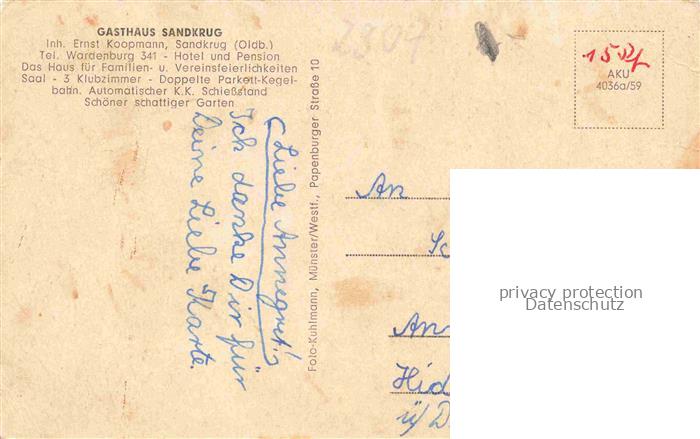 GASTHAUS SANDKRUG
Inh. Ernst Koopmann, Sandkrug (Oldb.)
Tel. Wardenburg 341 - Hotel und Pension
Das Haus für Familien- u. Vereinsfeierlichkeiten
Saal - 3 Klubzimmer - Doppelte Parkett-Kegel-
bahn. Automatischer K.K. Schießstand
Schöner schattiger Garten
Liebe Annegret!
Ich danke Dir für
Deine Liebe Karte.
Foto-Kuhlmann, Münster/Westf., Papenburger Straße 10
2807
AKU
4036a/59
An
Sc
An
Hid
ü/D
privacy protection
Datenschutz